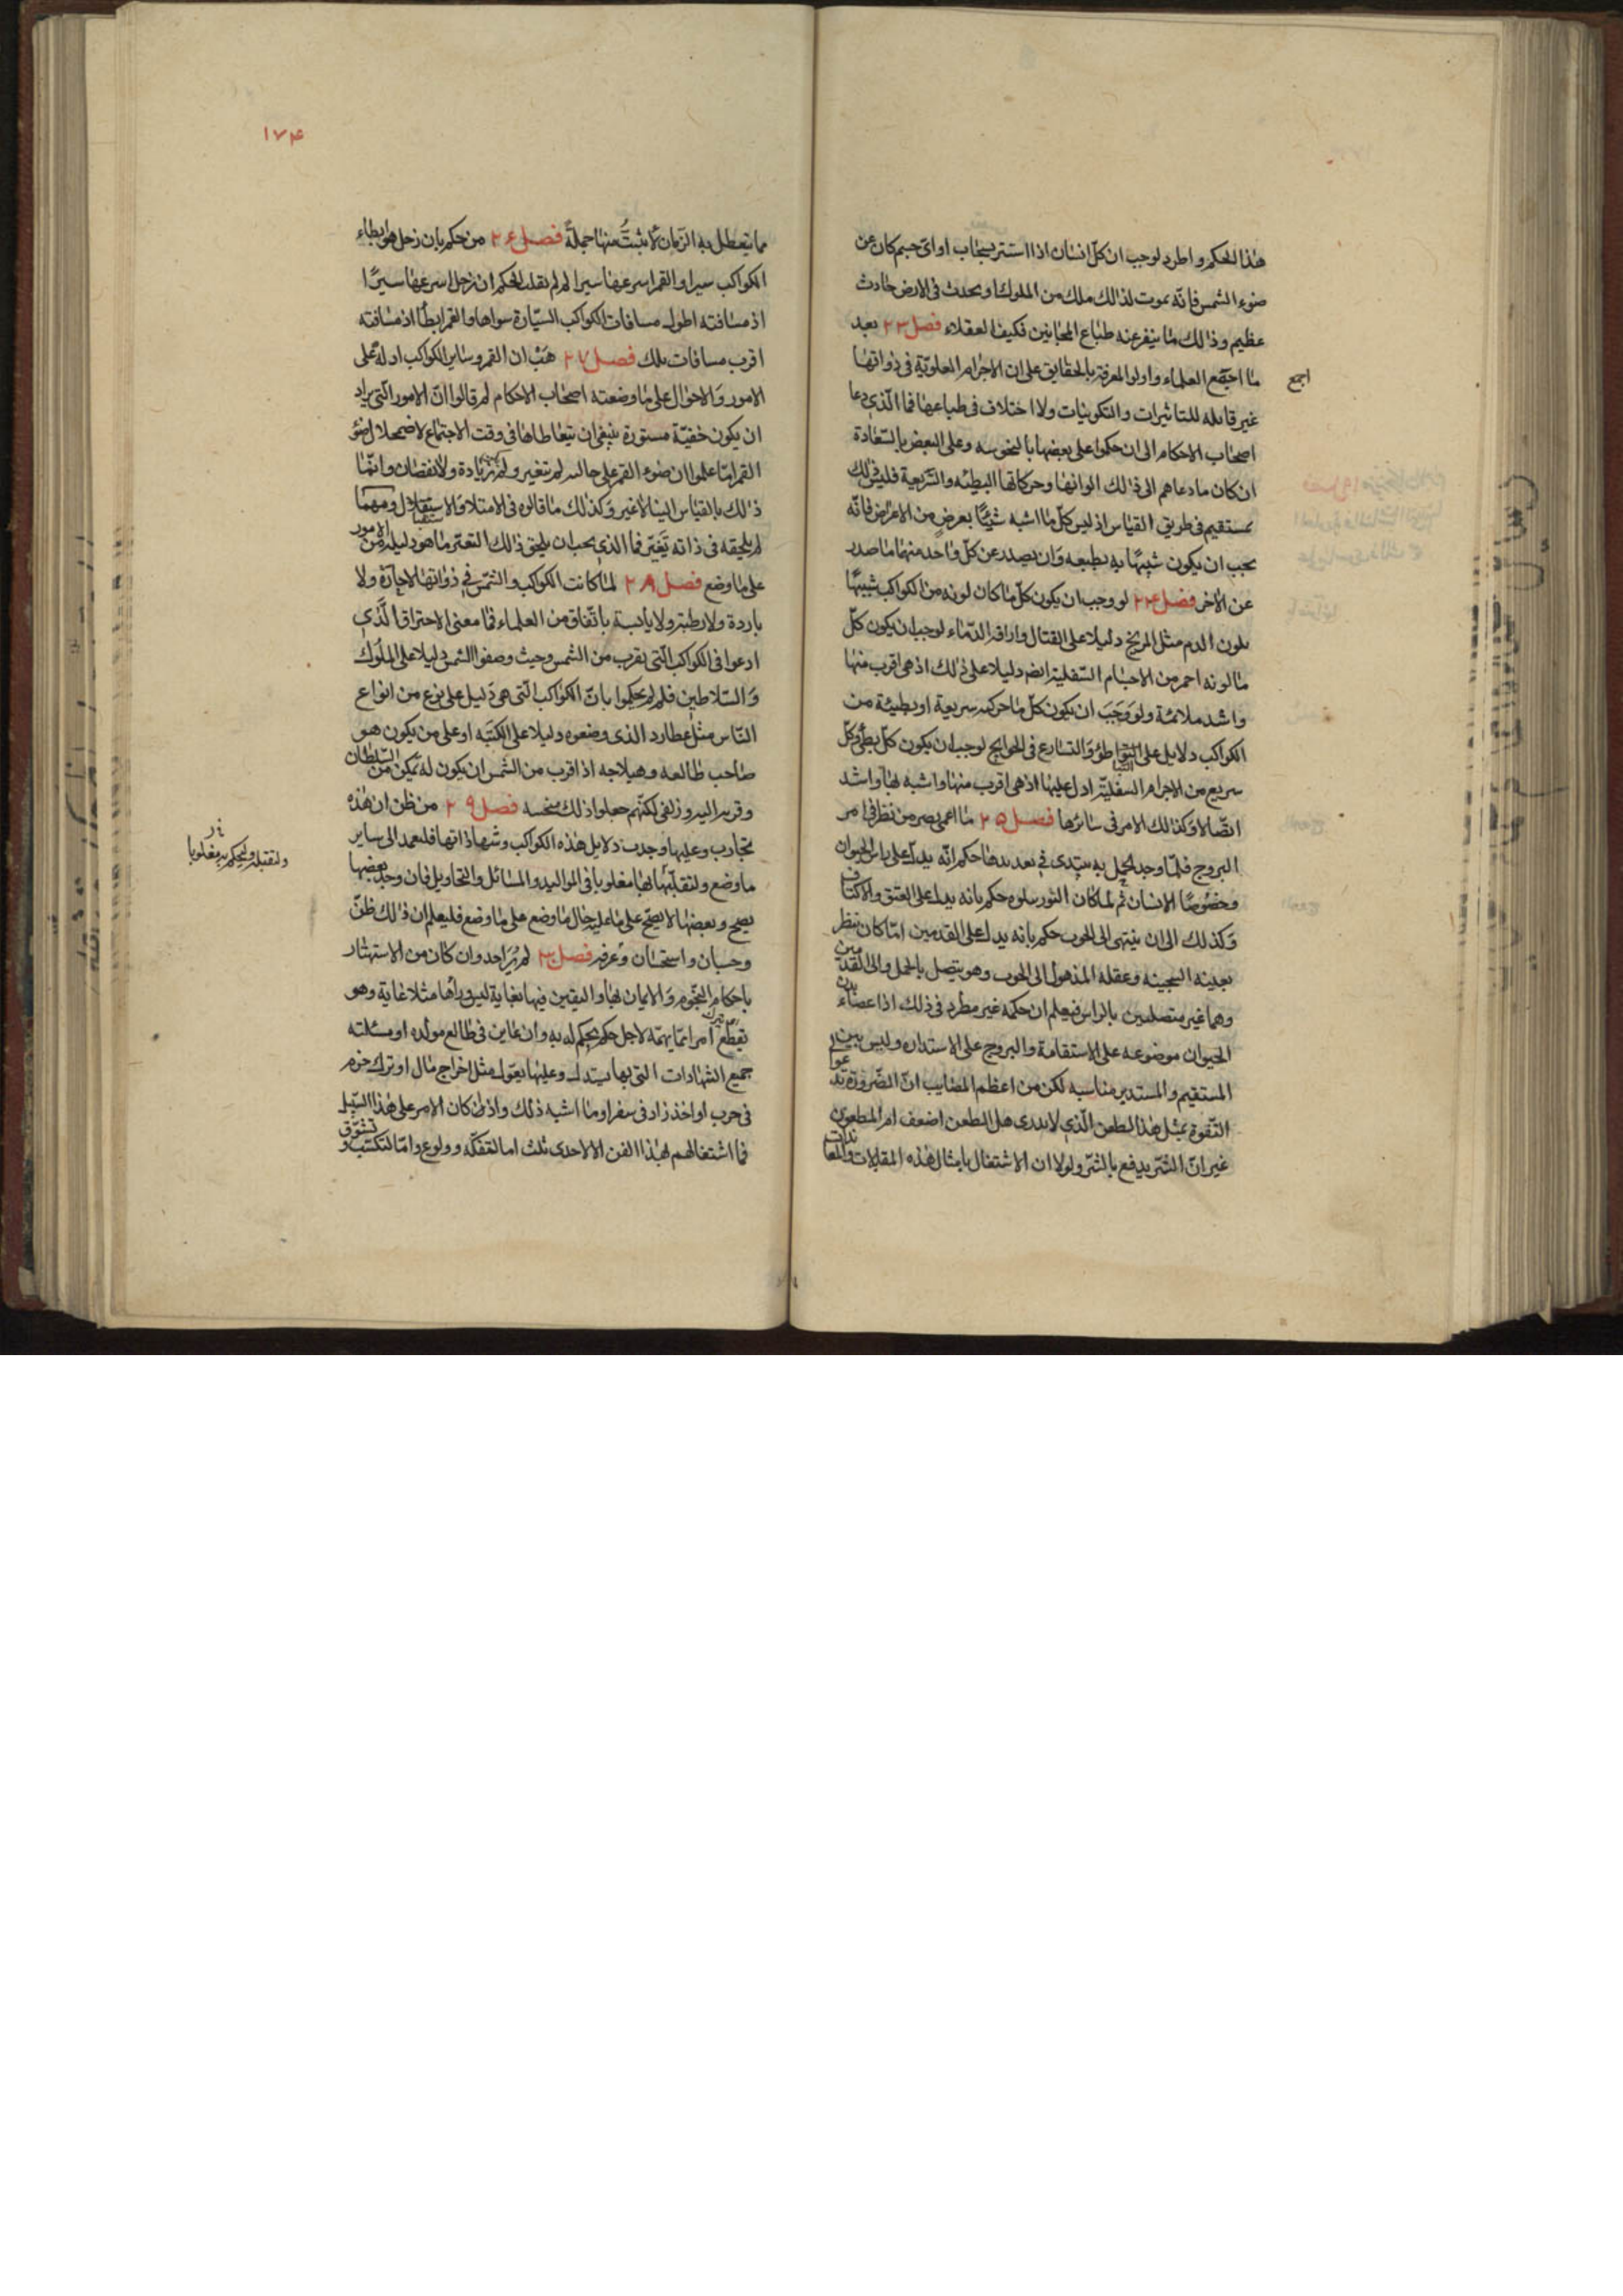 هذا الحكم واطرد لوجب ان كلّ انسان اذا استتر بسحاب او ایّ جسم كان عن
ضوء الشمس فانّه يموت لذالك ملك من الملوك او يحدث فى الارض حادث
عظيم وذالك مما ينفر عنه طباع المجانين فكيف العقلاء فصل ٢٣ بعد
ما اجتمع العلماء واولوا المعرفة بالحقايق على ان الاجرام العلويّة فى ذواتها
اجمع
غير قابله للتاثيرات والتكوينات ولا اختلاف فى طباعها فما الّذى دعا
اصحاب الاحكام الى ان حكموا على بعضها بالنحوسه وعلى البعض بالسّعادة
ان كان ما دعاهم الى ذلك الوانها وحركاتها البطيئه والسّريعة فليس ذلك
بمستقيم فى طريق القياس اذ ليس كلّ ما اشبه شيئًا بعرض من الاعراض فانّه
يجب ان يكون شبيهًا به بطبعه وان يصدر عن كلّ واحد منهما ما صدر
عن الاخر فصل ٢٤ لو وجب ان يكون كلّ ما كان لونه من الكواكب شبيهًا
بلون الدم مثل المريخ دليلا على القتال واراقة الدّماء لوجب ان يكون كلّ
ما لونه احمر من الاجسام السّفلية ايضا دليلا على ذلك اذ هى اقرب منها
واشد ملائمة ولو وجب ان يكون كلّ ما حركته سريعة او بطيئة من
الكواكب دلايل على التباطؤ والتسارع فى الحوايج لوجب ان يكون كلّ بطئ وكلّ
سريع من الاجرام السفليّة ادل عليها اذ هى اقرب منها واشبه بها واشد
اتّصالا وكذالك الامر فى سائرها فصل ٢٥ ما اعمى بصر من نظر فى امر
البروج فلمّا وجد الحمل به يبتدى فى تعديدها حكم انّه يدلّ على راس الحيوان
وخصوصًا الانسان ثم لما كان الثور يتلوه حكم بانه يدل على العنق والاكتاف
وكذلك الى ان ينتهى الى الحوت حكم بانه يدل على القدمين امّا كان ينظر
بعينه السخينه وعقله المذهول الى الحوت وهو يتصل بالحمل والى القدمين
وهما غير متصلين بالراس فيعلم ان حكمه غير مطرد فى ذلك اذ اعضاء بدن
الحيوان موضوعه على الاستقامة والبروج على الاستداره وليس بين
المستقيم والمستدير مناسبه لكن من اعظم المصايب انّ الضّرورة تدعو الى
التّفوه بمثل هذا الطعن الّذى لا يدرى هل الطعن اضعف ام المطعون
غير انّ الشّر يدفع بالشّر ولولا ان الاشتغال بامثال هذه المقابلات والمعاندات
١٧٤
مما يتعطل به الزمان لاثبتّ منها جملةً فصل ٢٦ من حكم بان زحل هو ابطاء
الكواكب سيرا والقمر اسرعها سيرا لم لم يقلب الحكم ان زحل اسرعها سيرًا
اذ مسافته اطول مسافات الكواكب السيّارة سواها والقمر ابطأ اذ مسافته
اقرب مسافات تلك فصل ٢٧ هَبْ ان القمر وساير الكواكب ادلة على
الامور والاحوال على ما وضعته اصحاب الاحكام لم قالوا انّ الامور الّتى يراد
ان يكون خفيّة مستورة ينبغى ان يتعاطاها فى وقت الاجتماع لاضمحلال ضوء
القمر امّا علموا ان ضوء القمر على حاله لم يتغير ولم يزد زيادة ولا نقصان وانّما
ذلك بالقياس الينا لا غير وكذلك ما قالوه فى الامتلا والاستقبال ومهما
لم يلحقه فى ذاته تغيّر فما الذى يجب ان يلحق ذلك التغيّر ما هو دليله من الامور
على ما وضع فصل ٢٨ لما كانت الكواكب والشمس فى ذواتها لا حارّة ولا
باردة ولا رطبة ولا يابسة باتّفاق من العلماء فما معنى الاحتراق الّذى
ادعوا فى الكواكب الّتى يقرب من الشمس وحيث وصفوا الشمس دليلا على الملوك
والسّلاطين فلم لم يحكموا بانّ الكواكب الّتى هى دليل على نوع من انواع
النّاس مثل عطارد الذى وضعوه دليلا على الكتبه او على من يكون هو
صاحب طالعه وهيلاجه اذا قرب من الشمس ان يكون له تمكن من السّلطان
وقربه اليه وزلفى لكنّهم جعلوا ذلك منحسه فصل ٢٩ من ظن ان هذه
تجارب وعليها وجدت دلايل هذه الكواكب وشهاداتها فليعمد الى ساير
ما وضع وليقلبها مقلوبا فى المواليد والمسائل والتحاويل فان وجد بعضها
وليقلبه وليحكم به مقلوبا
يصح وبعضها لا يصحّ على ما عليه حال ما وضع على ما وضع فليعلم ان ذلك ظنّ
وحسبان واستحسان وغرور فصل ٣٠ لم يُرَ احد وان كان من الاستهتار
باحكام النّجوم والايمان بها واليقين فيها بغاية ليس وراها مثلا غاية وهو
يقطّع امرا مما يهمّه لاجل حكم يحكم له به وان عاين فى طالع مولده او مسئلته
جميع الشهادات التى بها يستدل وعليها يعوّل مثل اخراج مال او ترك حزم
فى حرب او اخذ زاد فى سفر او ما اشبه ذلك واذ كان الامر على هذا السّبيل
فما اشتغالهم بهذا الفن الا لاحدى ثلث اما لتفكّه وولوع وامّا لتكسّب وتسّوق